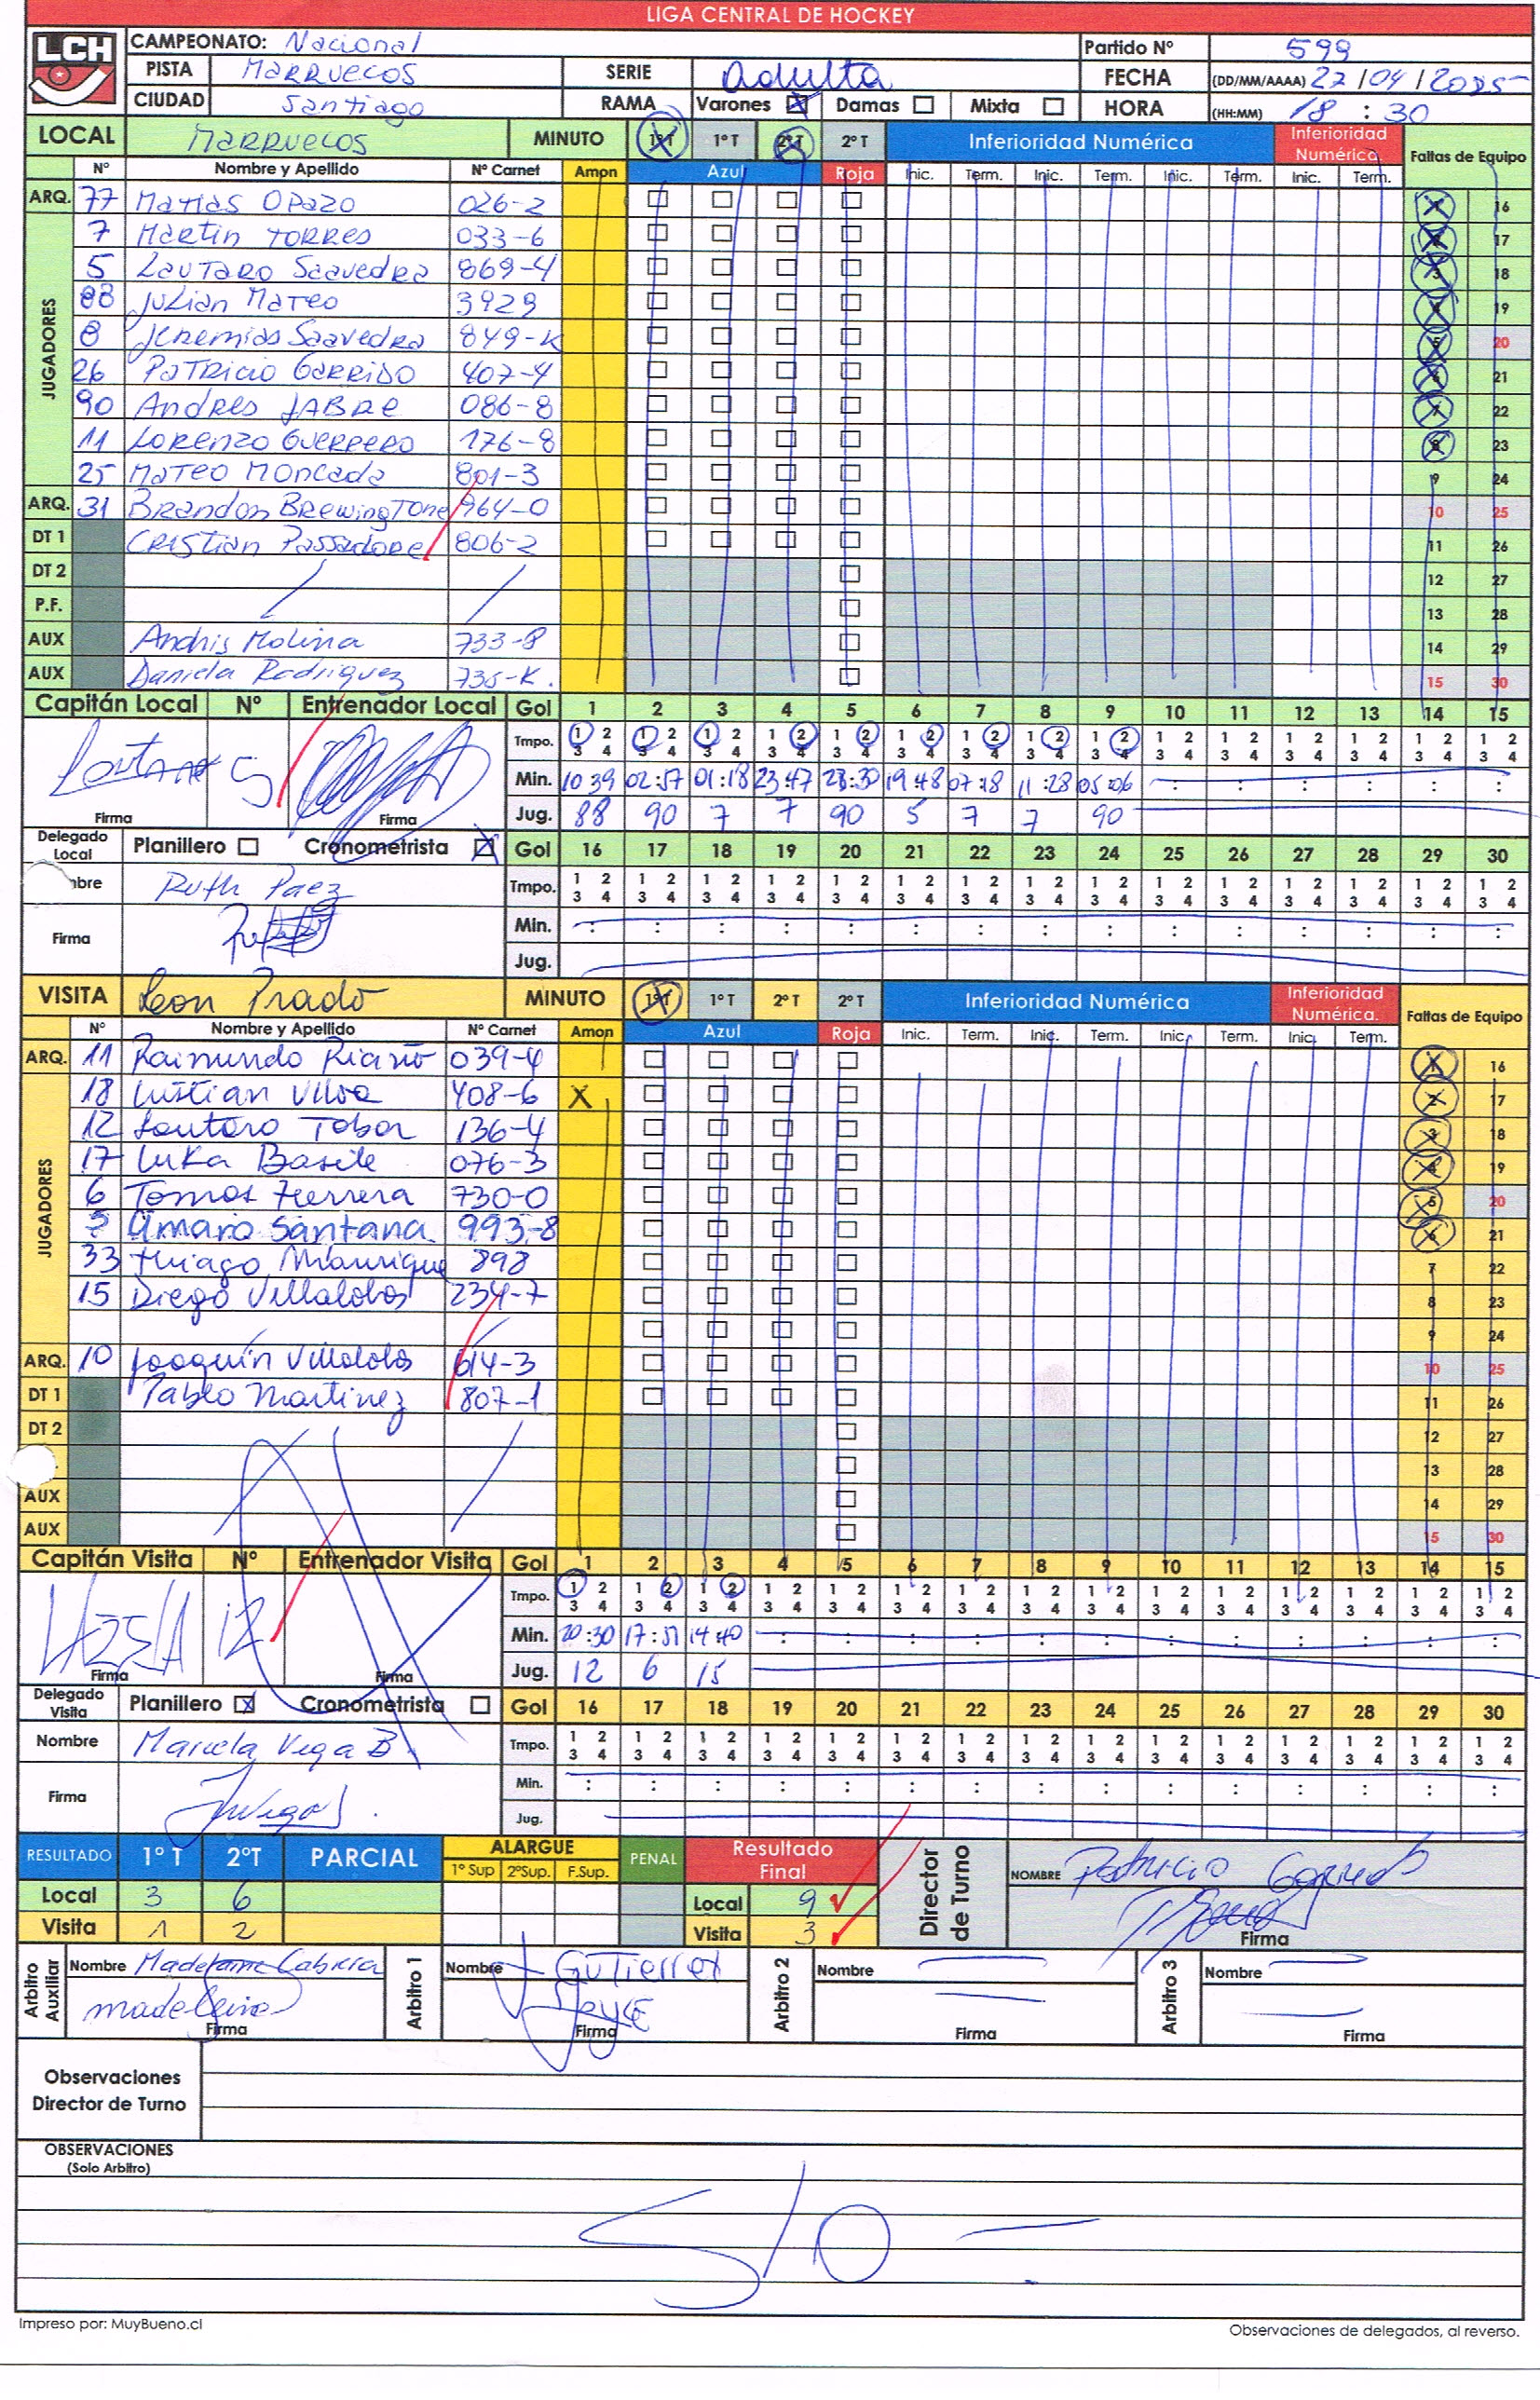 LIGA CENTRAL DE HOCKEY
LCH
CAMPEONATO: Nacional Partido Nº 599
PISTA MARRUECOS SERIE adulta FECHA (DD/MM/AAAA) 27/04/2025
CIUDAD Santiago RAMA Varones Damas Mixta HORA (HH:MM) 18:30
LOCAL MARRUECOS MINUTO 1ºT 1ºT 2ºT 2ºT Inferioridad Numérica Inferioridad Numérica Faltas de Equipo
Nº Nombre y Apellido Nº Carnet Amon Azul Roja Inic. Term. Inic. Term. Inic. Term. Inic. Term.
JUGADORES
ARQ. 77 Matias Opazo 026-2 1 16
7 Martin Torres 033-6 2 17
5 Lautaro Saavedra 869-4 3 18
88 Julian Mateo 3929 4 19
8 Jeremias Saavedra 849-K 5 20
26 Patricio Garrido 407-4 6 21
90 Andres JABRE 086-8 7 22
11 Lorenzo Guerrero 176-8 8 23
25 Mateo Moncada 801-3 9 24
ARQ. 31 Brandon BrewingTone 964-0 10 25
DT 1 Cristian Passadore 806-2 11 26
DT 2 12 27
P.F. 13 28
AUX Andris Molina 733-8 14 29
AUX Daniela Rodriguez 735-K. 15 30
Capitán Local Nº Entrenador Local Gol 1 2 3 4 5 6 7 8 9 10 11 12 13 14 15
Tmpo. 1 2 3 4 1 2 3 4 1 2 3 4 1 2 3 4 1 2 3 4 1 2 3 4 1 2 3 4 1 2 3 4 1 2 3 4 1 2 3 4 1 2 3 4 1 2 3 4 1 2 3 4 1 2 3 4 1 2 3 4
5 Min. 10 39 02:57 01:18 23:47 23:30 19:48 07:18 11:28 05:06
Firma Firma Jug. 88 90 7 7 90 5 7 7 90
Delegado Local Planillero Cronometrista Gol 16 17 18 19 20 21 22 23 24 25 26 27 28 29 30
Nombre Ruth Paez Tmpo. 1 2 3 4 1 2 3 4 1 2 3 4 1 2 3 4 1 2 3 4 1 2 3 4 1 2 3 4 1 2 3 4 1 2 3 4 1 2 3 4 1 2 3 4 1 2 3 4 1 2 3 4 1 2 3 4 1 2 3 4
Firma Min.
Jug.
VISITA Leon Prado MINUTO 1ºT 1ºT 2ºT 2ºT Inferioridad Numérica Inferioridad Numérica. Faltas de Equipo
Nº Nombre y Apellido Nº Carnet Amon Azul Roja Inic. Term. Inic. Term. Inic. Term. Inic. Term.
JUGADORES
ARQ. 11 Raimundo Riaño 039-4 1 16
18 Cristian Ulloa 408-6 X 2 17
12 Lautaro Tobar 136-4 3 18
17 Luka Basile 076-3 4 19
6 Tomas Herrera 730-0 5 20
Amaro Santana. 993-8 6 21
33 Thiago Manrique 898 7 22
15 Diego Villalobos 234-7 8 23
9 24
ARQ. 10 Joaquín Villalobos 614-3 10 25
DT 1 Pablo Martinez 807-1 11 26
DT 2 12 27
13 28
AUX 14 29
AUX 15 30
Capitán Visita Nº Entrenador Visita Gol 1 2 3 4 5 6 7 8 9 10 11 12 13 14 15
Tmpo. 1 2 3 4 1 2 3 4 1 2 3 4 1 2 3 4 1 2 3 4 1 2 3 4 1 2 3 4 1 2 3 4 1 2 3 4 1 2 3 4 1 2 3 4 1 2 3 4 1 2 3 4 1 2 3 4 1 2 3 4
12 Min. 20:30 17:51 14:40
Firma Firma Jug. 12 6 15
Delegado Visita Planillero Cronometrista Gol 16 17 18 19 20 21 22 23 24 25 26 27 28 29 30
Nombre Mariela Vega B. Tmpo. 1 2 3 4 1 2 3 4 1 2 3 4 1 2 3 4 1 2 3 4 1 2 3 4 1 2 3 4 1 2 3 4 1 2 3 4 1 2 3 4 1 2 3 4 1 2 3 4 1 2 3 4 1 2 3 4 1 2 3 4
Firma Min.
Jug.
RESULTADO 1º T 2ºT PARCIAL ALARGUE 1º Sup 2ºSup. F.Sup. PENAL Resultado Final Director de Turno NOMBRE Patricio Garrido
Local 3 6 Local 9
Visita 1 2 Visita 3 Firma
Arbitro Auxiliar Nombre Madelaine Cabrera Arbitro 1 Nombre Gutierrez Arbitro 2 Nombre Arbitro 3 Nombre
Firma Firma Joyce Firma Firma
Observaciones
Director de Turno
OBSERVACIONES
(Solo Arbitro)
S/O
Impreso por: MuyBueno.cl Observaciones de delegados, al reverso.